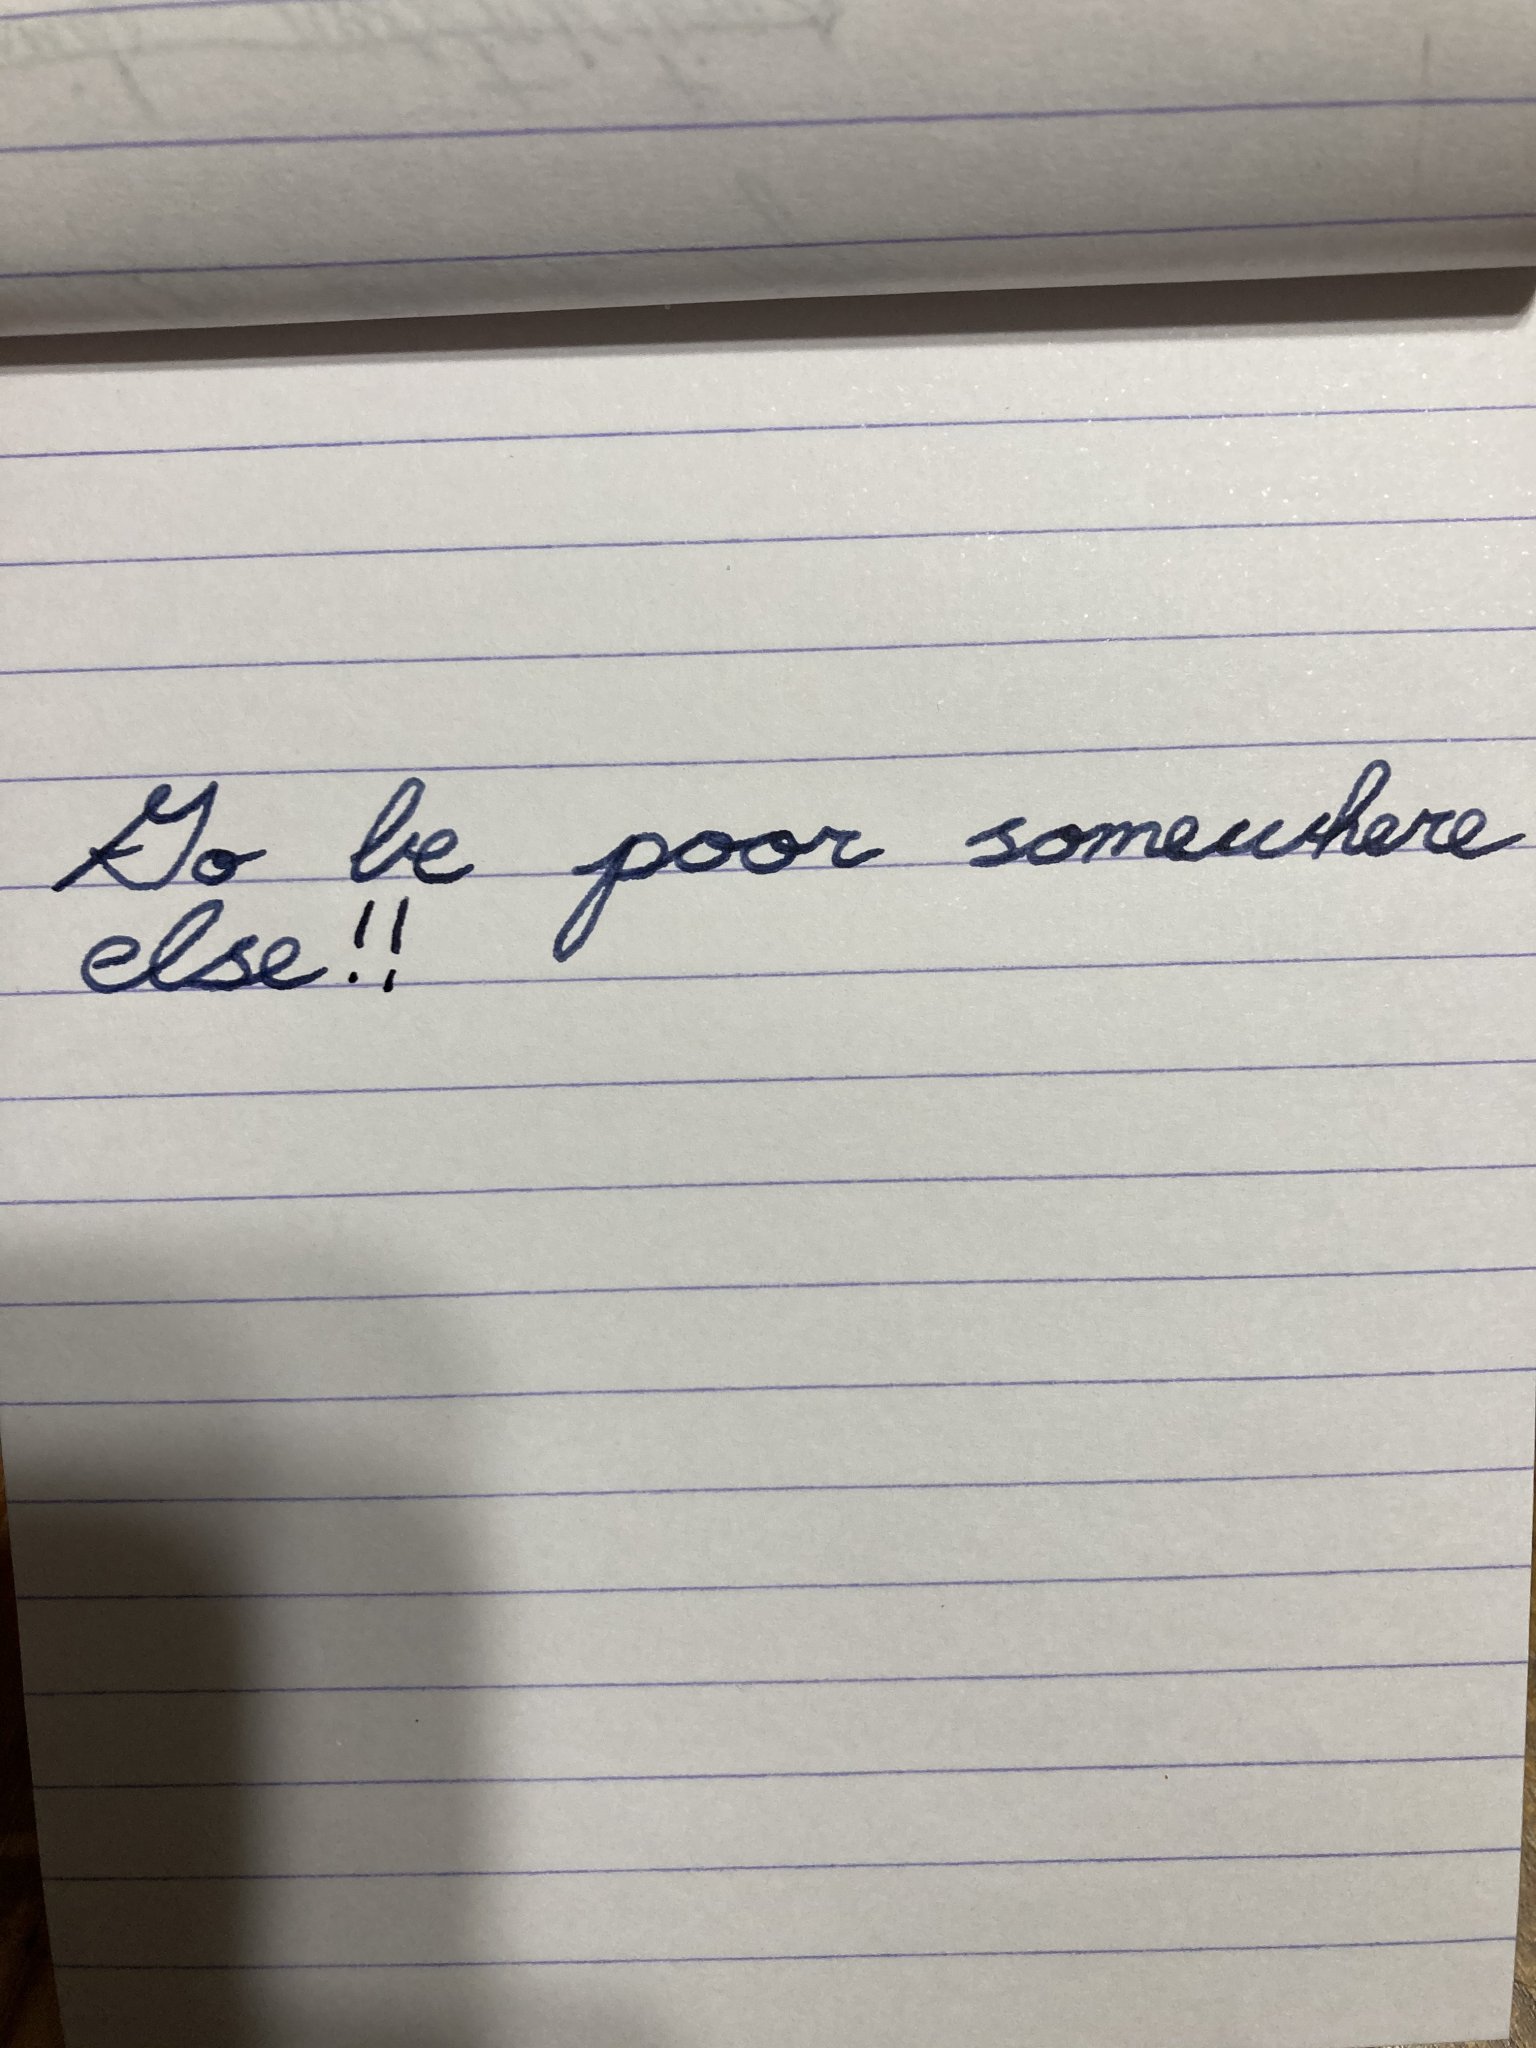 Go be poor somewhere
else!!